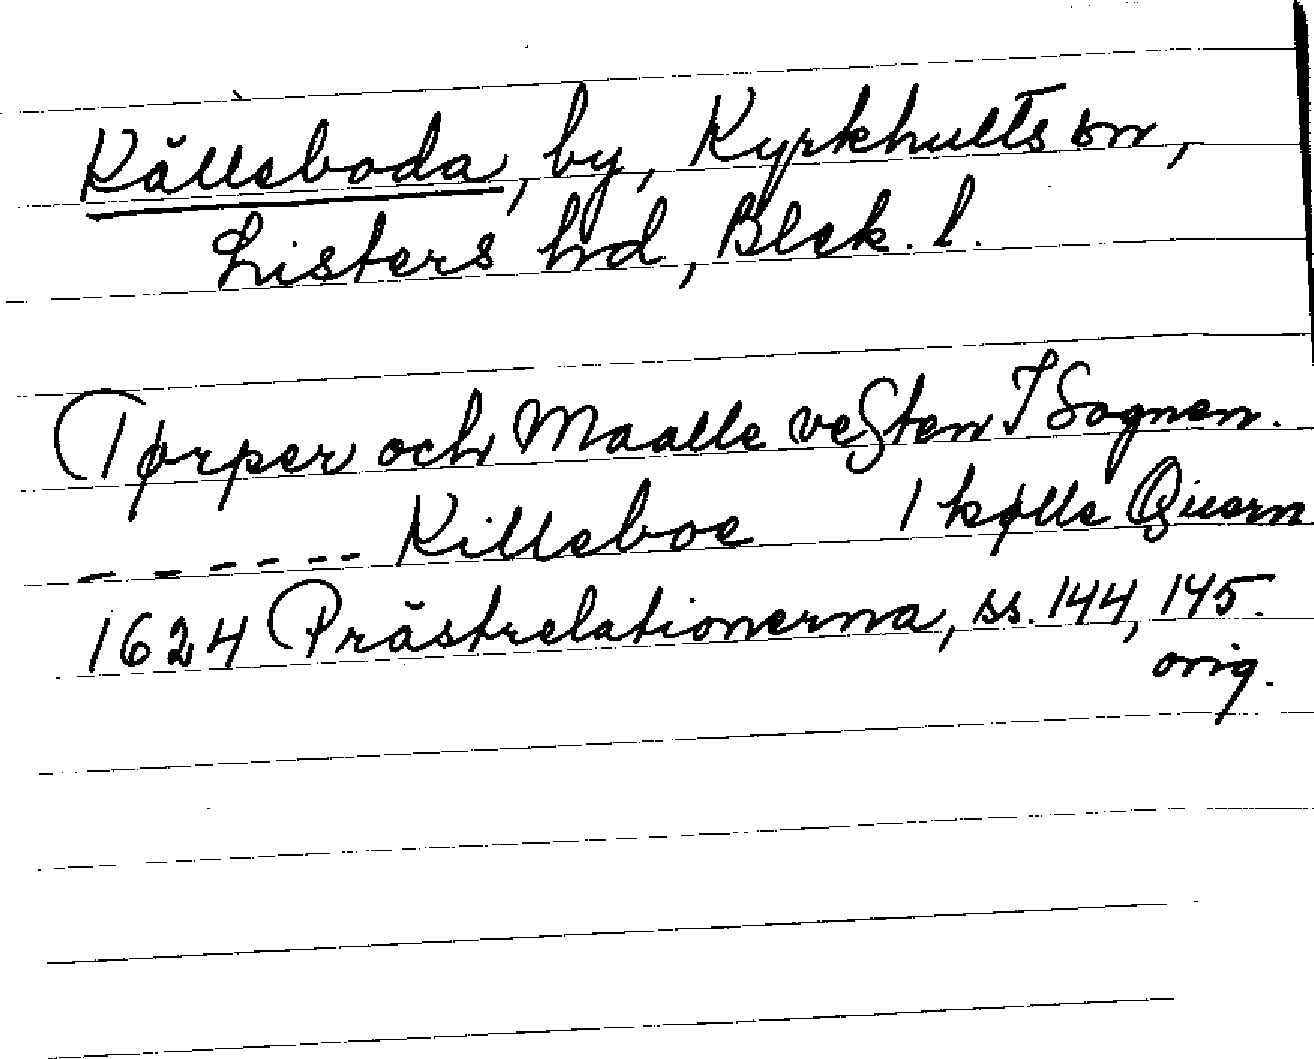 Källeboda, by, Kyrkhults sn,
Listers hd, Blek. l.
Tørper och Maalle vesten I Sognen.
------ Killeboe 1 kølle Quern
1624 Prästrelationerna, ss. 144, 145.
orig.